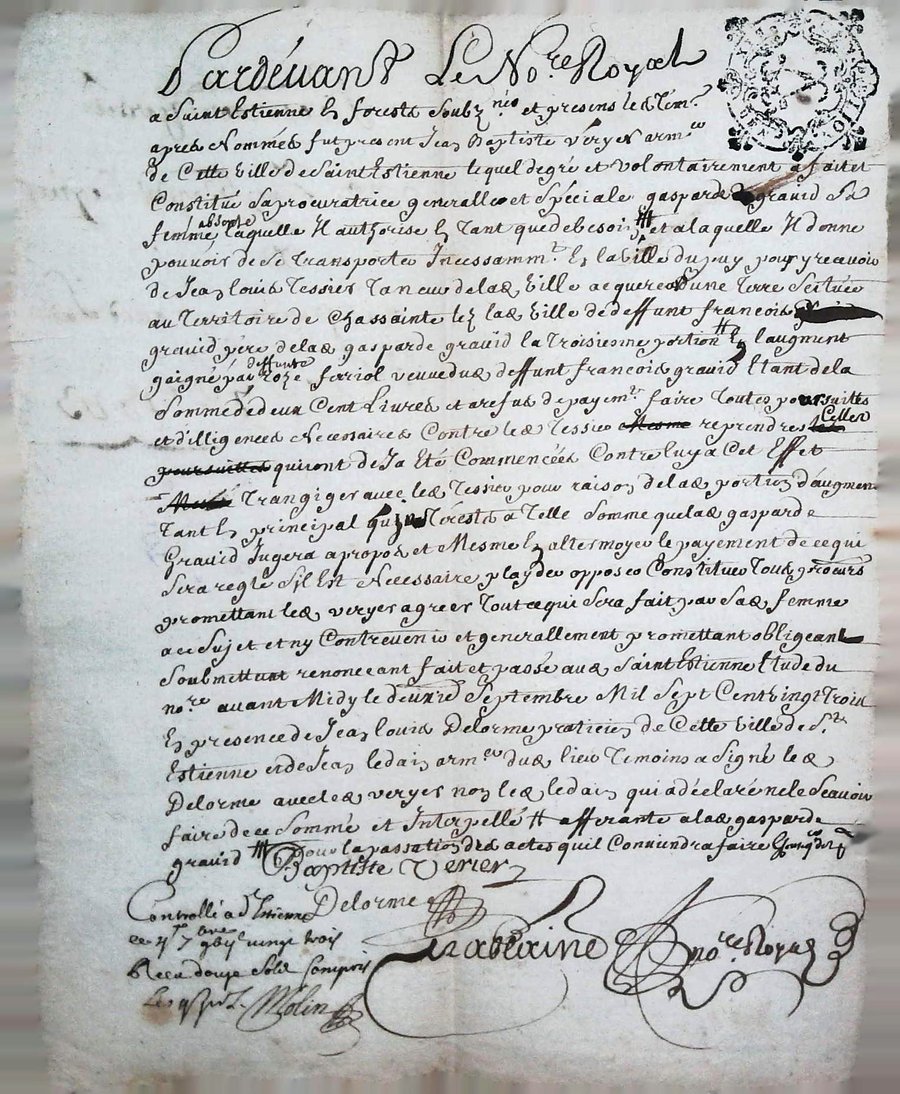 Pardevant Le No.re Royal
a Saint Estienne En forests Soubz.né et presens les Tém.s
apres Nommés fut present Jean Baptiste Veryer arm.er
de Cette ville de Saint Estienne lequel de gré et volontairement a fait et
Constitué sa procuratrice generalle et speciale gasparde gravid Sa
femme absente laquelle Il authorise En tant que de besoin # et a laquelle Il donne
pouvoir de se transporter Incessamm.t En la ville du puy pour y recevoir
de Jean louis Tessier Taneur de lad ville acquereur d'une Terre Scituée
au Territoire de Chassainte lez lad ville de deffunt francois
gravid pere de lad gasparde gravid la Troisiesme portion # En l'augment
gaigné par deffunte roze feriol veuve dud deffunt francois gravid Etant de la
Somme de deux Cent Livres et a refus de payem.t faire Toutes poursuittes
et dilligences Necessaires Contre led Tessier Mesme reprendre Celles
poursuittes qui ont deja Eté Commencées Contre luy a Cet Effet
Transiger avec led Tessier pour raison de lad portion d'augment
Tant En principal qu'Interests a Telle Somme que lad gasparde
Gravid Jugera a propos et Mesme En altermoyer le payement de ce qui
Sera reglé S'il Est Necessaire playder opposer Constituer Tous procurs
promettant led veryer agreer Tout ce qui Sera fait par Sad femme
a ce Sujet et n'y Contrevenir et generallement promettant obligeant
Soubmettant renoncant fait et passé aud Saint Estienne Etude du
no.re avant Midy le Septembre Mil Sept Cent vingt Trois
En presence de Jean louis Delorme praticien de Cette ville de S.t
Estienne et de Jean ledais arm.er dud lieu Temoins a Signé led
Delorme avec led veryer non led ledais qui a déclaré ne le Scavoir
faire de ce Sommé et Interpellé # afferante a lad gasparde
gravid # pour la passation des actes qu'il Conviendra faire
Baptiste Verier
Controllé a S.t Estienne Delorme
ce vingt trois
Receu douze Sols Compris
Les Molin
no.re Royal